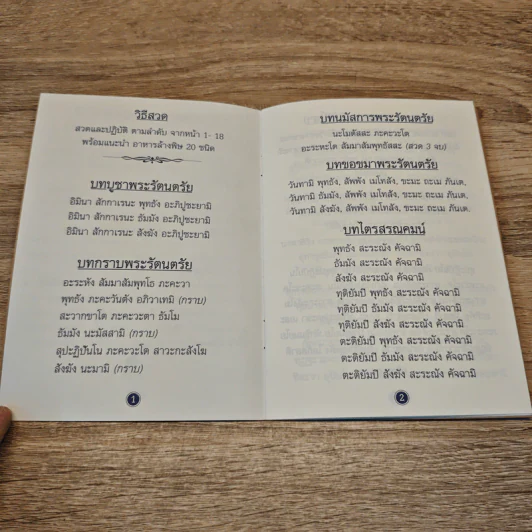 วิธีสวด
สวดและปฏิบัติ ตามลำดับ จากหน้า 1- 18
พร้อมแนะนำ อาหารล้างพิษ 20 ชนิด
บทบูชาพระรัตนตรัย
อิมินา สักกาเรนะ พุทธัง อะภิปูชะยามิ
อิมินา สักกาเรนะ ธัมมัง อะภิปูชะยามิ
อิมินา สักกาเรนะ สังฆัง อะภิปูชะยามิ
บทกราบพระรัตนตรัย
อะระหัง สัมมาสัมพุทโธ ภะคะวา
พุทธัง ภะคะวันตัง อภิวาเทมิ (กราบ)
สะวากขาโต ภะคะวะตา ธัมโม
ธัมมัง นะมัสสามิ (กราบ)
สุปะฏิปันโน ภะคะวะโต สาวะกะสังโฆ
สังฆัง นะมามิ (กราบ)
1
บทนมัสการพระรัตนตรัย
นะโมตัสสะ ภะคะวะโต
อะระหะโต สัมมาสัมพุทธัสสะ (สวด 3 จบ)
บทขอขมาพระรัตนตรัย
วันทามิ พุทธัง, สัพพัง เมโทสัง, ขะมะ ถะเม ภันเต.
วันทามิ ธัมมัง, สัพพัง เมโทสัง, ขะมะ ถะเม ภันเต.
วันทามิ สังฆัง, สัพพัง เมโทสัง, ขะมะ ถะเม ภันเต.
บทไตรสรณคมน์
พุทธัง สะระณัง คัจฉามิ
ธัมมัง สะระณัง คัจฉามิ
สังฆัง สะระณัง คัจฉามิ
ทุติยัมปิ พุทธัง สะระณัง คัจฉามิ
ทุติยัมปิ ธัมมัง สะระณัง คัจฉามิ
ทุติยัมปิ สังฆัง สะระณัง คัจฉามิ
ตะติยัมปิ พุทธัง สะระณัง คัจฉามิ
ตะติยัมปิ ธัมมัง สะระณัง คัจฉามิ
ตะติยัมปิ สังฆัง สะระณัง คัจฉามิ
2